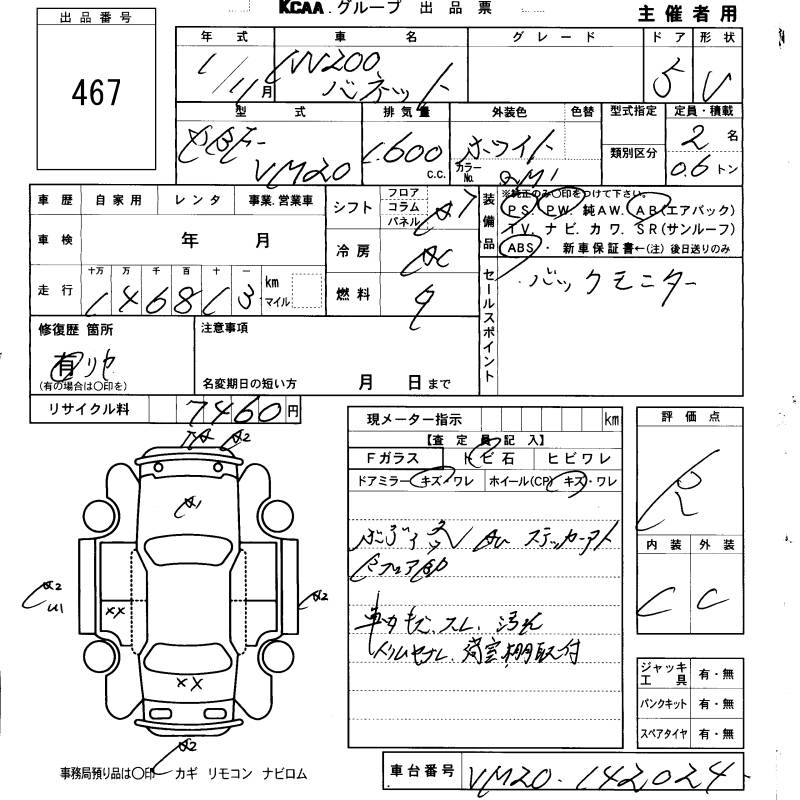 KCAA.グループ 出品票
主催者用
出品番号
467
年式 車名 グレード ドア 形状
1/11月 NV200 バネット 5 V
型式 排気量 外装色 色替 型式指定 定員・積載
類別区分
DBF-VM20 1,600 c.c. ホワイト カラーNo. QM1 2名 0.6トン
車歴 自家用 レンタ 事業.営業車
車検 年 月
走行 十万 万 千 百 十 一 km マイル
146813
シフト フロア コラム パネル AT
冷房 AC
燃料
装備品 ※純正のみ〇印をつけて下さい。
PS. PW. 純AW. AB(エアバック)
TV. ナビ. カワ. SR(サンルーフ)
ABS・ 新車保証書←(注)後日送りのみ
セールスポイント
バックモニター
修復歴 箇所
有 リヤ
(有の場合は〇印を)
注意事項
名変期日の短い方 月 日まで
リサイクル料 7460円
現メーター指示 km
【査定員記入】
Fガラス トビ石 ヒビワレ
ドアミラー キズ・ワレ ホイール(CP) キズ・ワレ
ステッカーアト
車内キズ、スレ、汚れ
荷室棚取付
評価点
R
内装 外装
C C
ジャッキ工具 有・無
パンクキット 有・無
スペアタイヤ 有・無
A2
A1
A2
U1
A2
XX
XX
A2
事務局預り品は〇印 カギ リモコン ナビロム
車台番号 VM20-142024